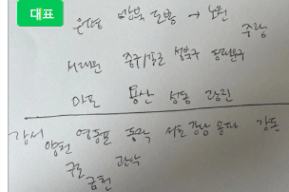 대표
은평 강북 도봉 → 노원
중랑
서대문 중구/종로 성북구 동대문구
마포 용산 성동 광진
강서 양천 영등포 동작 서초 강남 송파 강동
구로 관악
금천